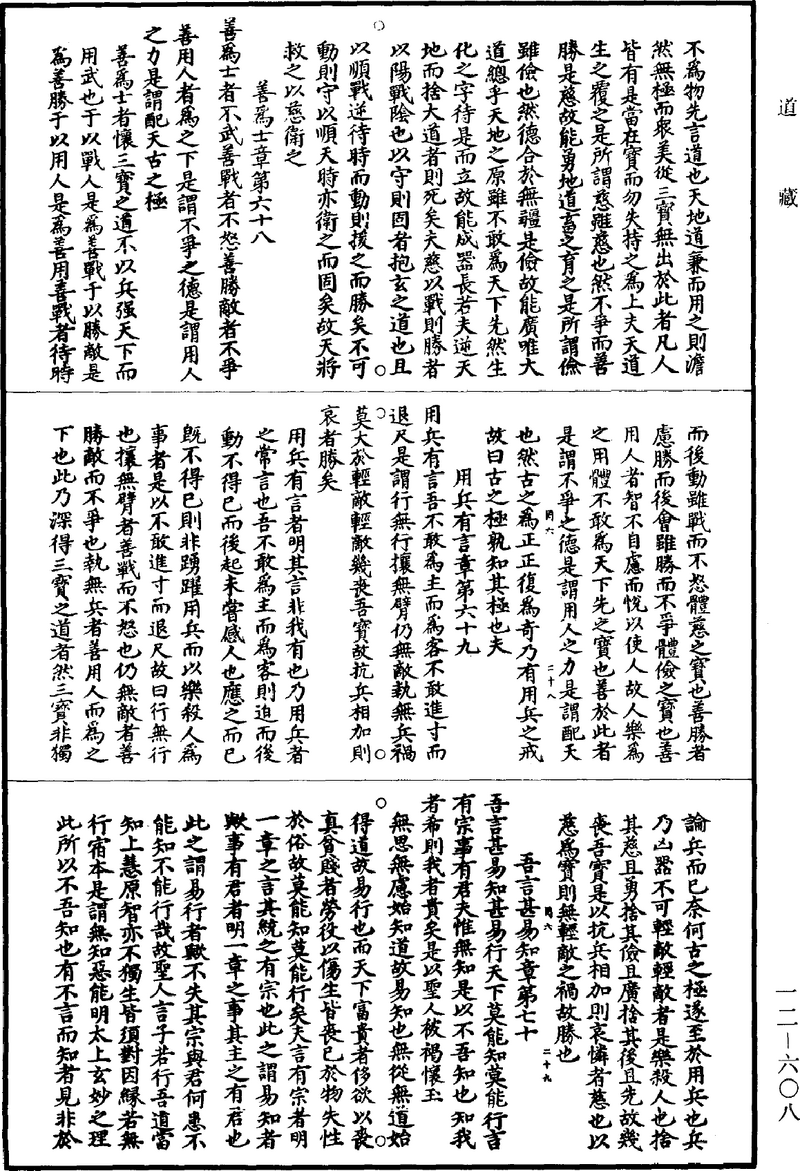 道藏
不爲物先言道也天地道兼而用之則澹
然無極而衆美從三寶無出於此者凡人
皆有是當在寶而勿失持之爲上夫天道
生之覆之是所謂慈雖慈也然不爭而善
勝是慈故能勇地道畜之育之是所謂儉
雖儉也然德合於無疆是儉故能廣唯大
道總乎天地之原雖不敢爲天下先然生
化之字待是而立故能成器長若夫逆天
地而捨大道者則死矣夫慈以戰則勝者
以陽戰陰也以守則固者抱玄之道也且
以順戰逆待時而動則援之而勝矣不可
動則守以順天時亦衛之而固矣故天將
救之以慈衛之
善爲士章第六十八
善爲士者不武善戰者不怒善勝敵者不爭
善用人者爲之下是謂不爭之德是謂用人
之力是謂配天古之極
善爲士者懷三寶之道不以兵强天下而
用武也于以戰人是爲善戰于以勝敵是
爲善勝于以用人是爲善用善戰者待時
而後動雖戰而不怒體慈之寶也善勝者
慮勝而後會雖勝而不爭體儉之寶也善
用人者智不自慮而悅以使人故人樂爲
之用體不敢爲天下先之寶也善於此者
是謂不爭之德是謂用人之力是謂配天
也然古之爲正正復爲奇乃有用兵之戒
故曰古之極孰知其極也夫
用兵有言章第六十九
用兵有言吾不敢爲主而爲客不敢進寸而
退尺是謂行無行攘無臂仍無敵執無兵禍
莫大於輕敵輕敵幾喪吾寶故抗兵相加則
哀者勝矣
用兵有言者明其言非我有也乃用兵者
之常言也吾不敢爲主而爲客則迫而後
動不得已而後起未嘗感人也應之而已
既不得已則非踴躍用兵而以樂殺人爲
事者是以不敢進寸而退尺故曰行無行
也攘無臂者善戰而不怒也仍無敵者善
勝敵而不爭也執無兵者善用人而爲之
下也此乃深得三寶之道者然三寶非獨
論兵而已奈何古之極遂至於用兵也兵
乃凶器不可輕敵輕敵者是樂殺人也捨
其慈且勇捨其儉且廣捨其後且先故幾
喪吾寶是以抗兵相加則哀憐者慈也以
慈爲寶則無輕敵之禍故勝也
吾言甚易知章第七十
吾言甚易知甚易行天下莫能知莫能行言
有宗事有君夫惟無知是以不吾知也知我
者希則我者貴矣是以聖人被褐懷玉
無思無慮始知道故易知也無從無道始
得道故易行也而天下富貴者侈欲以喪
真貧賤者勞役以傷生皆喪已於物失性
於俗故莫能知莫能行矣夫言有宗者明
一章之言其統之有宗也此之謂易知者
歟事有君者明一章之事其主之有君也
此之謂易行者歟不失其宗與君何患不
能知不能行哉故聖人言子若行吾道當
知上慧原智亦不獨生皆須對因緣若無
行宿本是謂無知惡能明太上玄妙之理
此所以不吾知也有不言而知者見非於
一二—六〇八